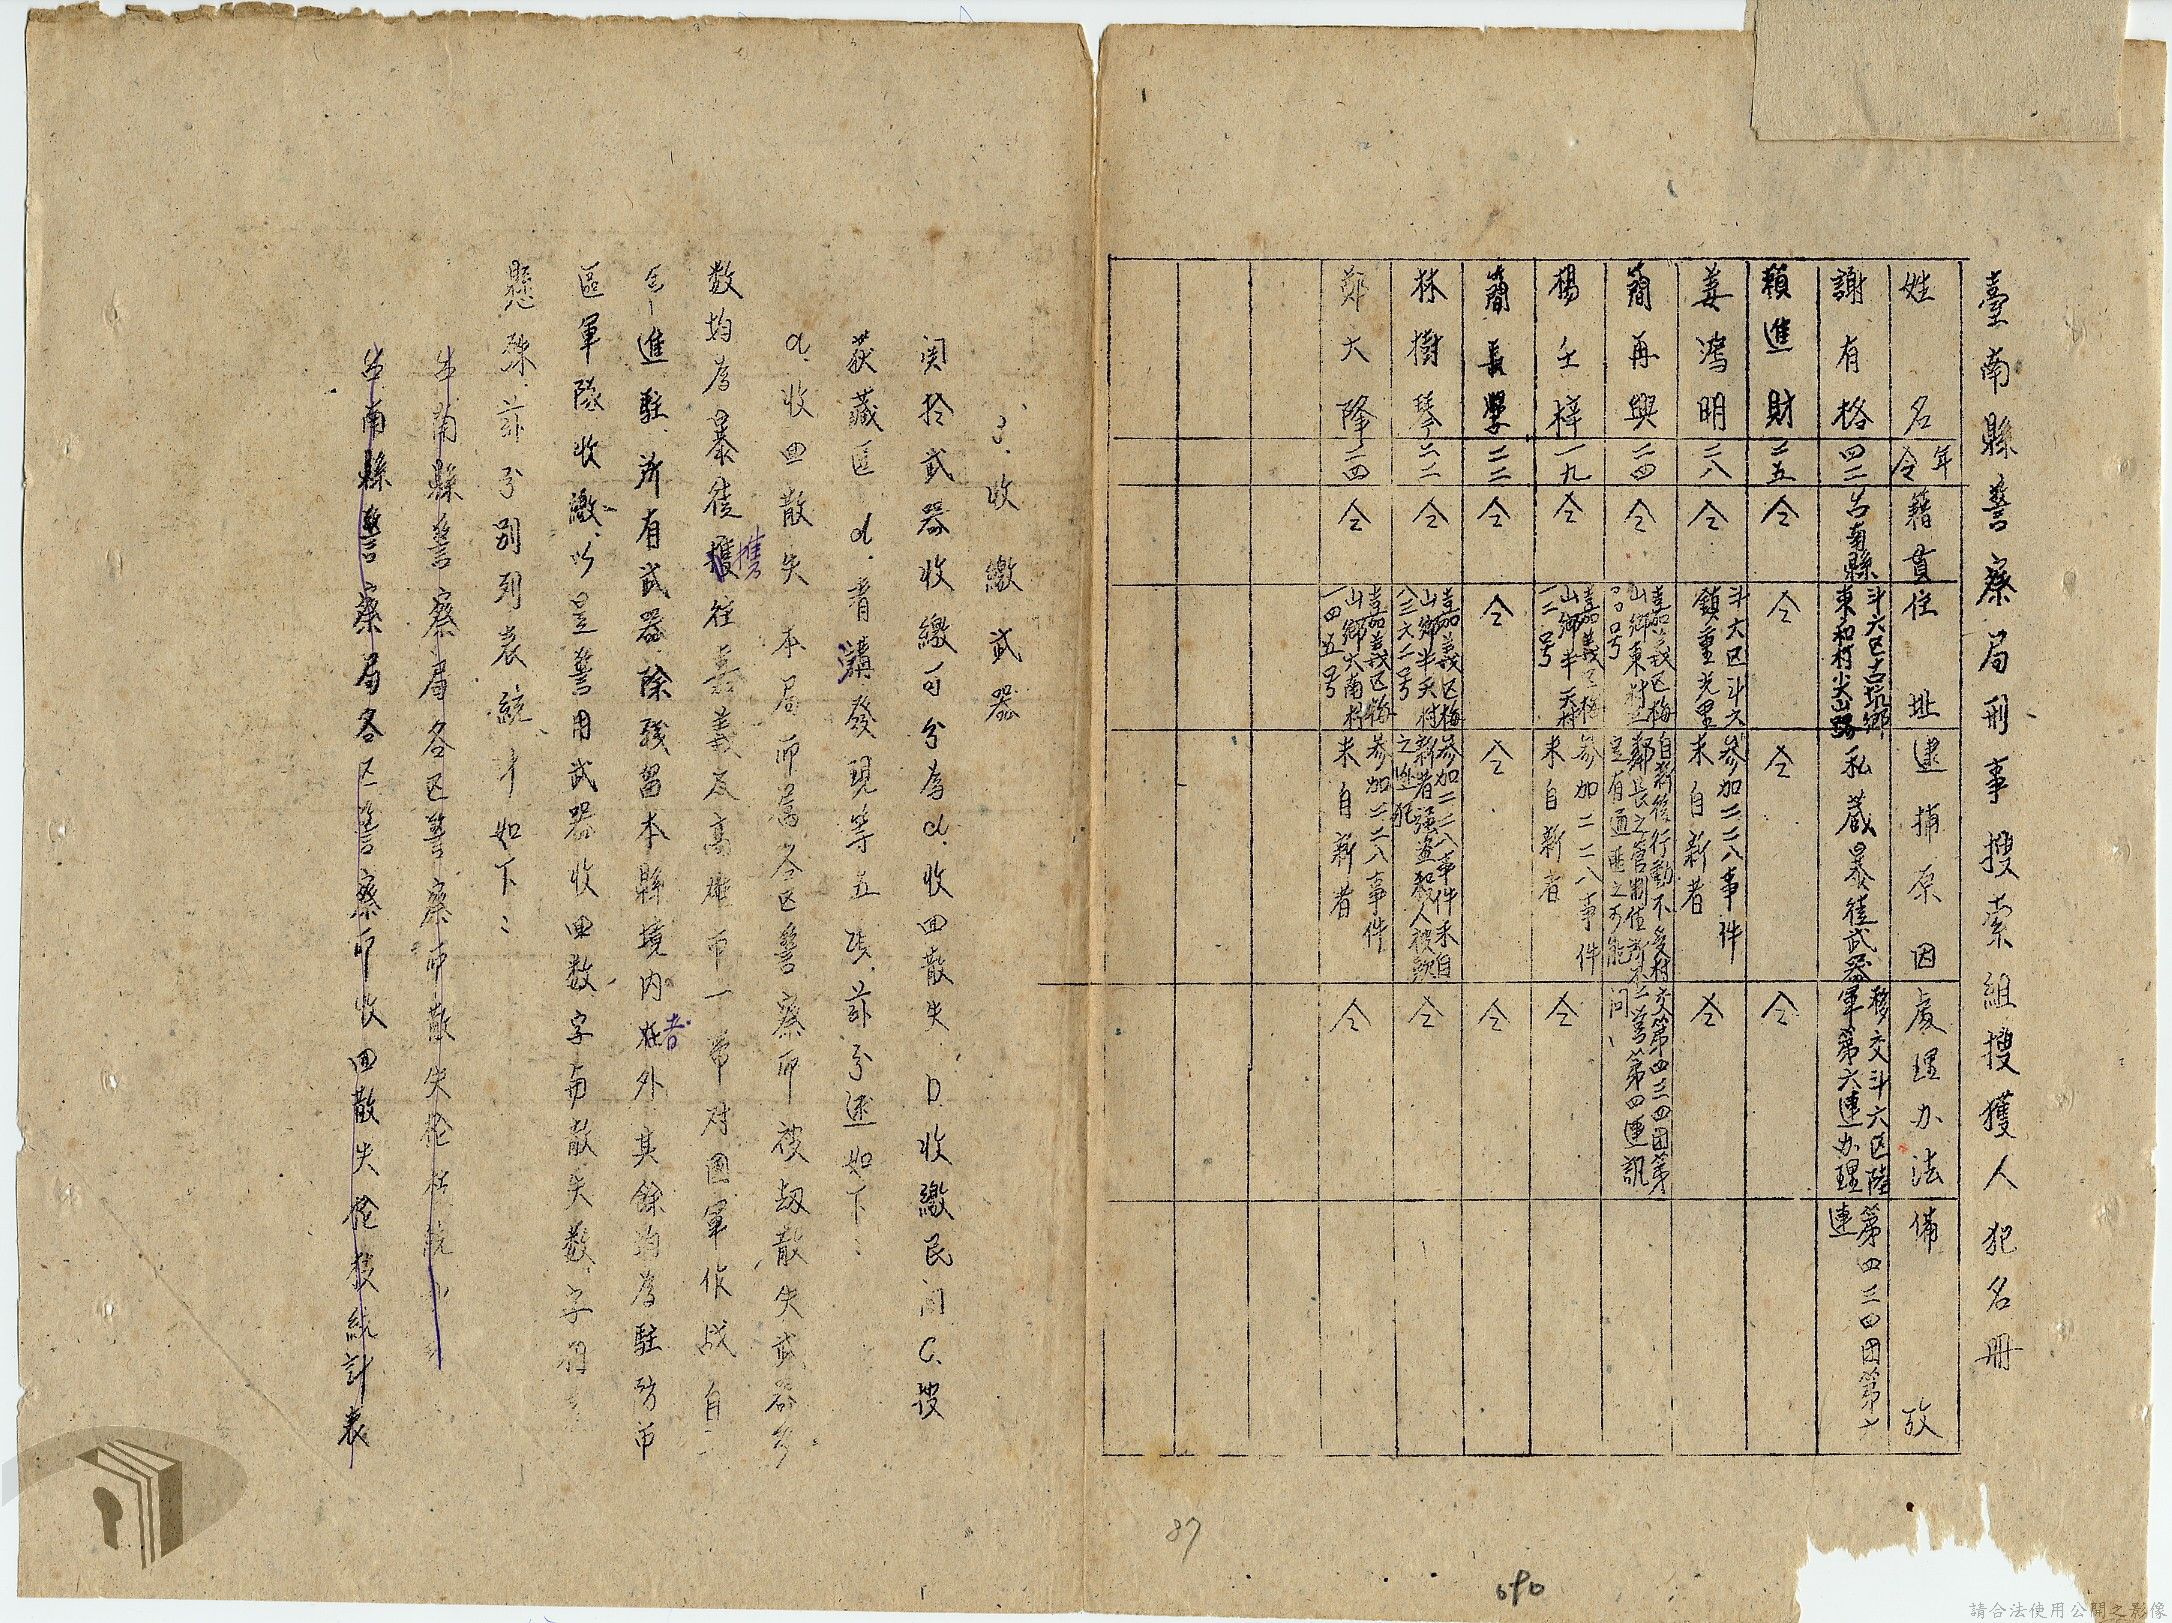 臺南縣警察局刑事搜索組搜獲人犯名冊
姓名 年令 籍貫 住址 逮捕原因 處理办法 備攷
謝有格 四二 台南縣 斗六区古坑鄉東和村尖山腳 私藏暴徒武器 移交斗六区陸軍第六連办理 第四三四团第六連
賴進財 二五 仝 仝 仝 仝
姜鴻明 二八 仝 斗六区斗六鎮重光里 參加二二八事件未自新者 仝
簡再興 二四 仝 嘉義区梅山鄉東村 自新後行動不受村鄰長之管制住所不 交第四三四团第二营第四連訊問
楊壬梓 一九 仝 嘉義区梅山鄉半天村一二号 參加二二八事件未自新者 仝
簡長學 二二 仝 仝 仝 仝
林樹琴 二二 仝 嘉義区梅山鄉半天村八三六二号 參加二二八事件未自新者強盗殺人被 之逃犯 仝
鄭大隆 二四 仝 嘉義区梅山鄉大南村一四五号 參加二二八事件未自新者 仝
3.收繳武器
関於武器收繳可分為a.收回散失 b.收繳民间 c.搜
荻藏匿 d.青溝發現等五項.茲分述如下：
a.收回散失本局所屬各区警察所被劫散失武器多
数均為暴徒攜往嘉義及高雄市一帶对國軍作战自二
進駐.所有武器除残留本縣境内者外其餘均為駐防市
區軍隊收繳.以是警用武器收回数字南散失数字相
懸殊.茲分別列表統计如下：
台南縣警察局各区警察所散失枪枝統
台南縣警察局各区警察所收回散失枪枝統計表
87
690
請合法使用公開之影像